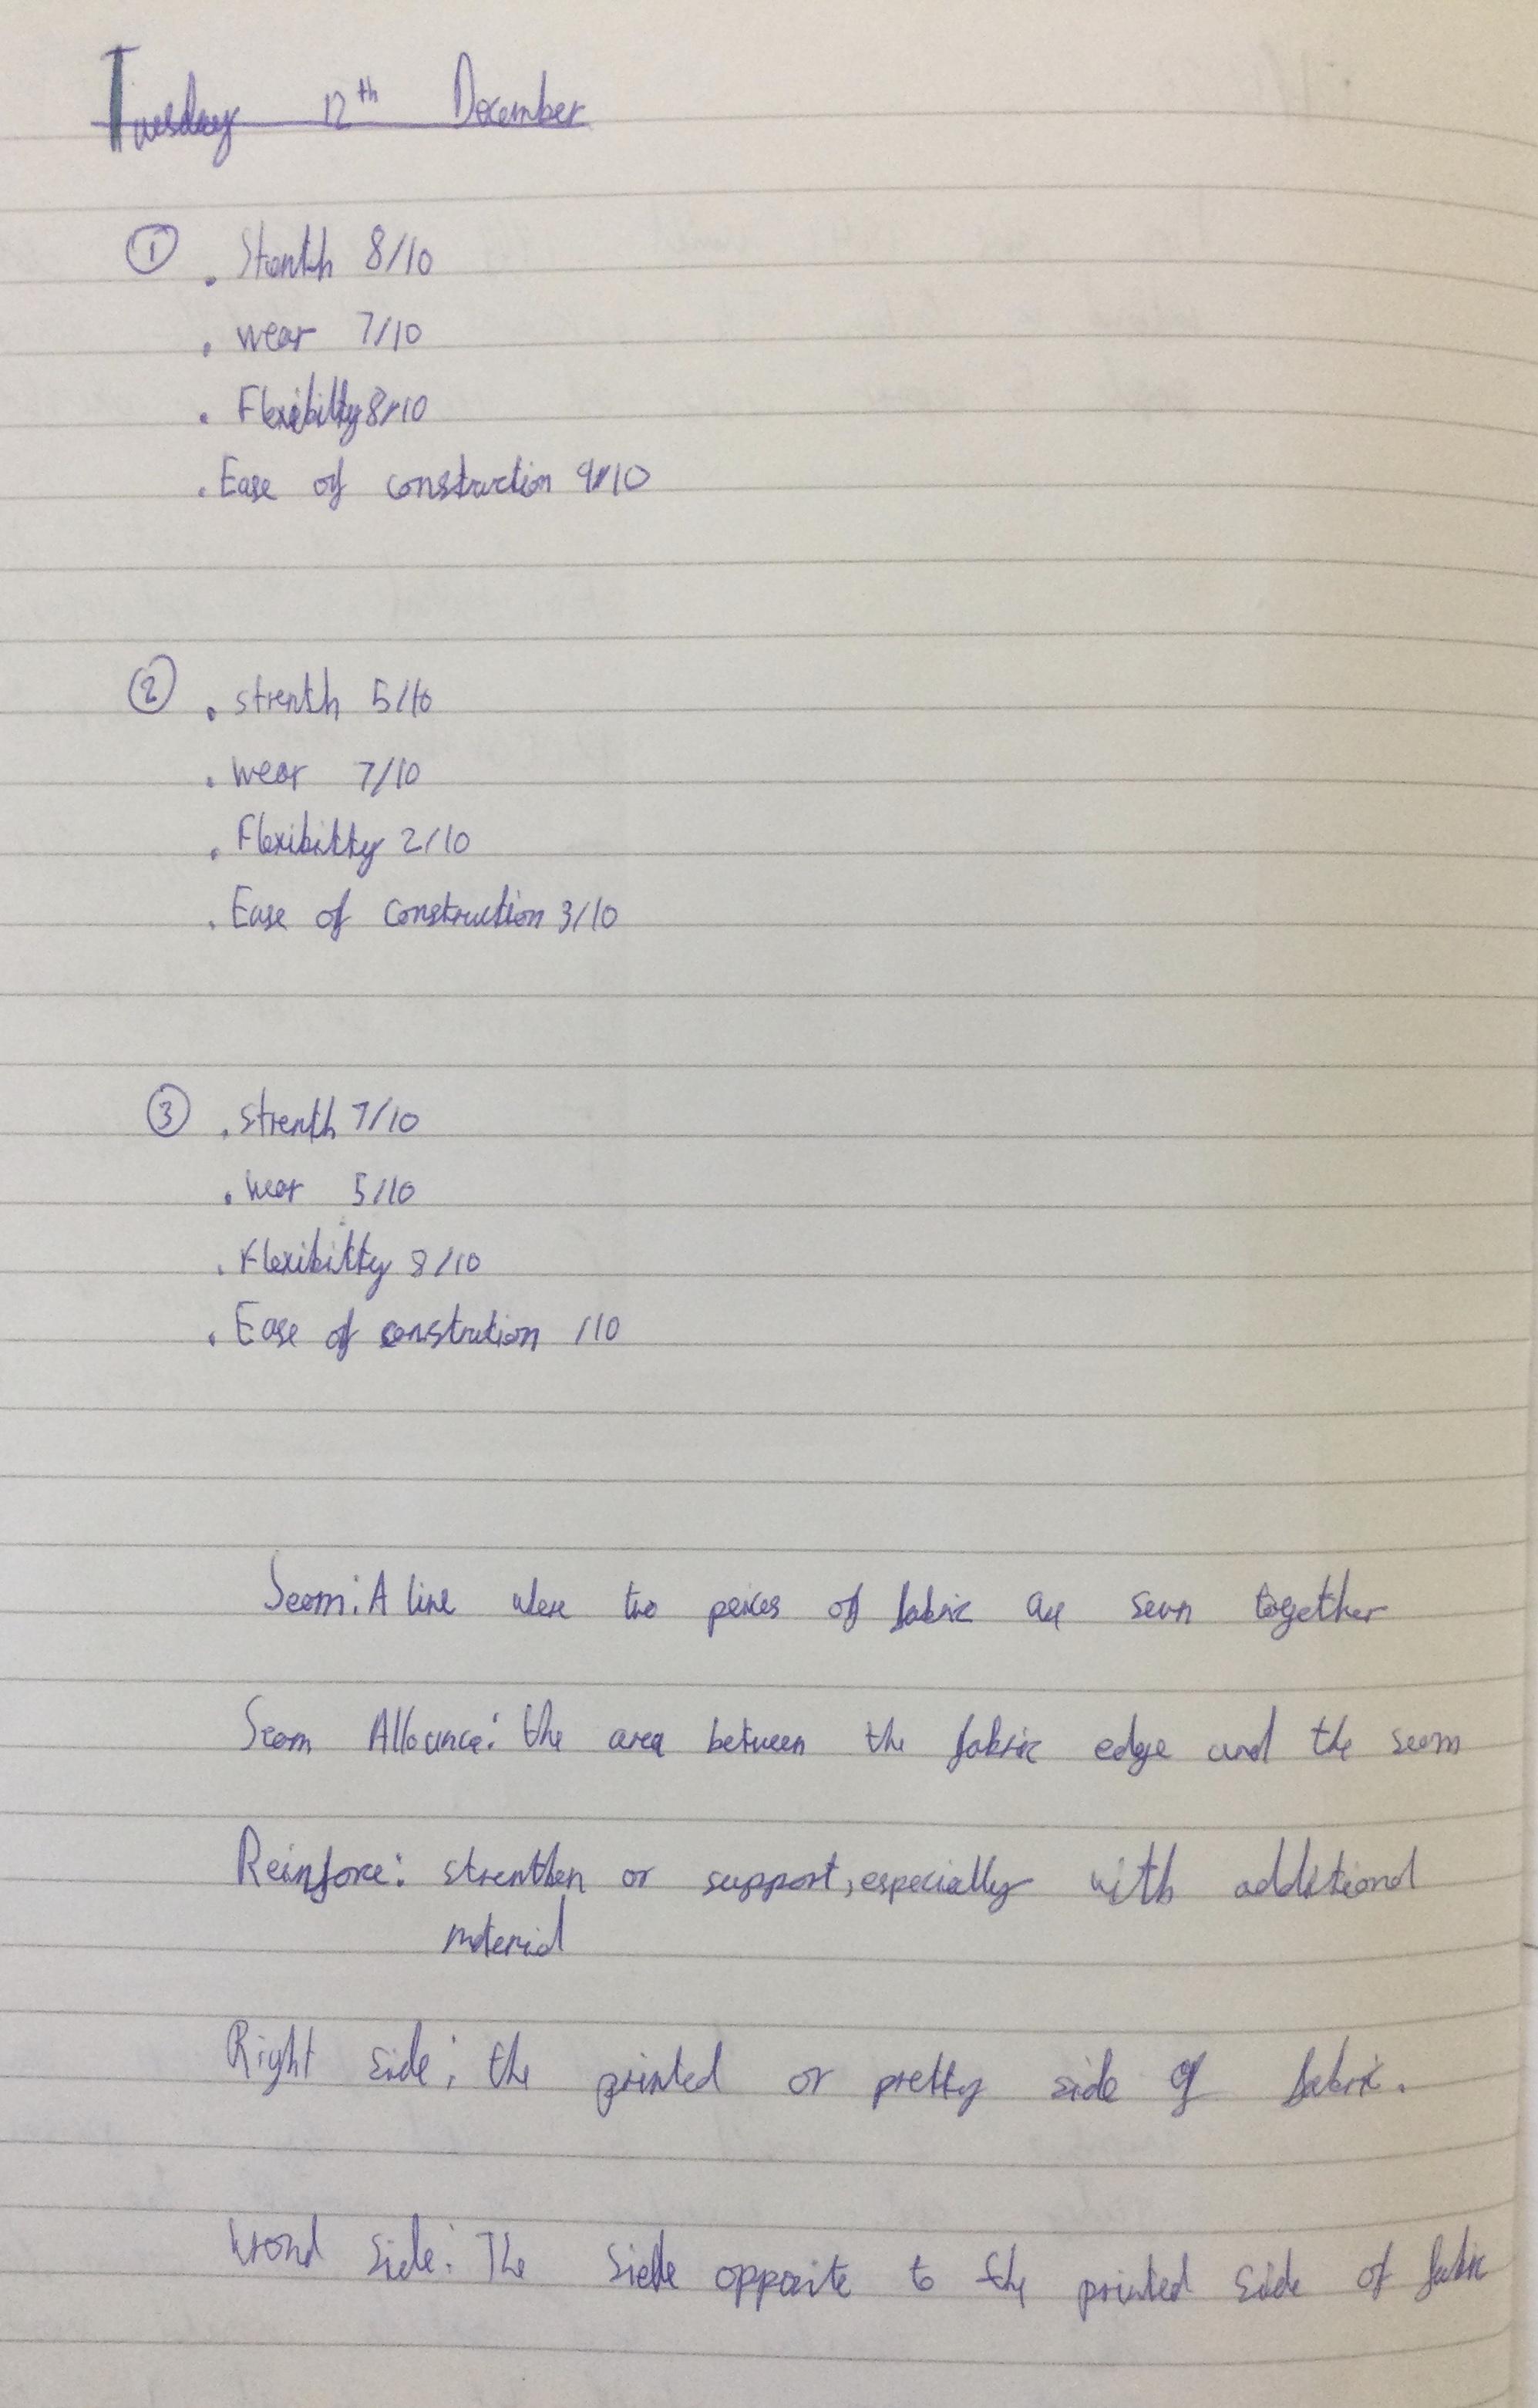 Tuesday 12th December
① . Strenth 8/10
. wear 7/10
. Flexibility 8/10
. Ease of construction 9/10
② . strenth 5/10
. wear 7/10
. Flexibility 2/10
. Ease of construction 3/10
③ . strenth 7/10
. wear 5/10
. Flexibility 8/10
. Ease of constrution /10
Seam: A line were two peices of fabric are sewn together
Seam Allowance: the area between the fabric edge and the seam
Reinforce: strenthen or support, especially with additional
material
Right side: the printed or pretty side of fabric.
Wrond side: The side opposite to the printed side of fabric